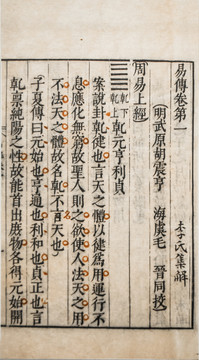 易傳卷第一
李氏集解
（明武原胡震亨　海虞毛　晉同挍）
周易上經
乾下乾上乾元亨利貞
案說卦乾徤也言天之體以徤爲用運行不
息應化無窮故聖人則之欲使人法天之用
不法天之體故名乾不言天也
子夏傳曰元始也亨通也利和也貞正也言
乾稟純陽之性故能首出庶物各得元始開